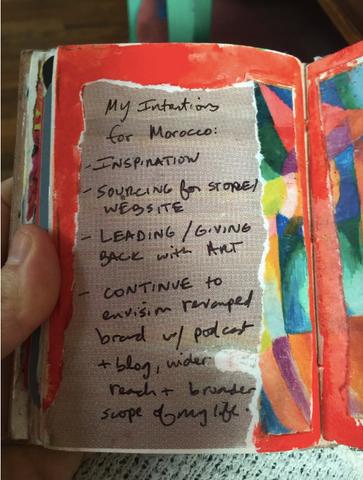 My Intentions
for Morocco:
- INSPIRATION
- SOURCING for STORE/
WEBSITE
- LEADING / GIVING
BACK with ART
- CONTINUE to
envision revamped
brand w/ podcast
+ blog, wider
reach + broader
scope of my life.